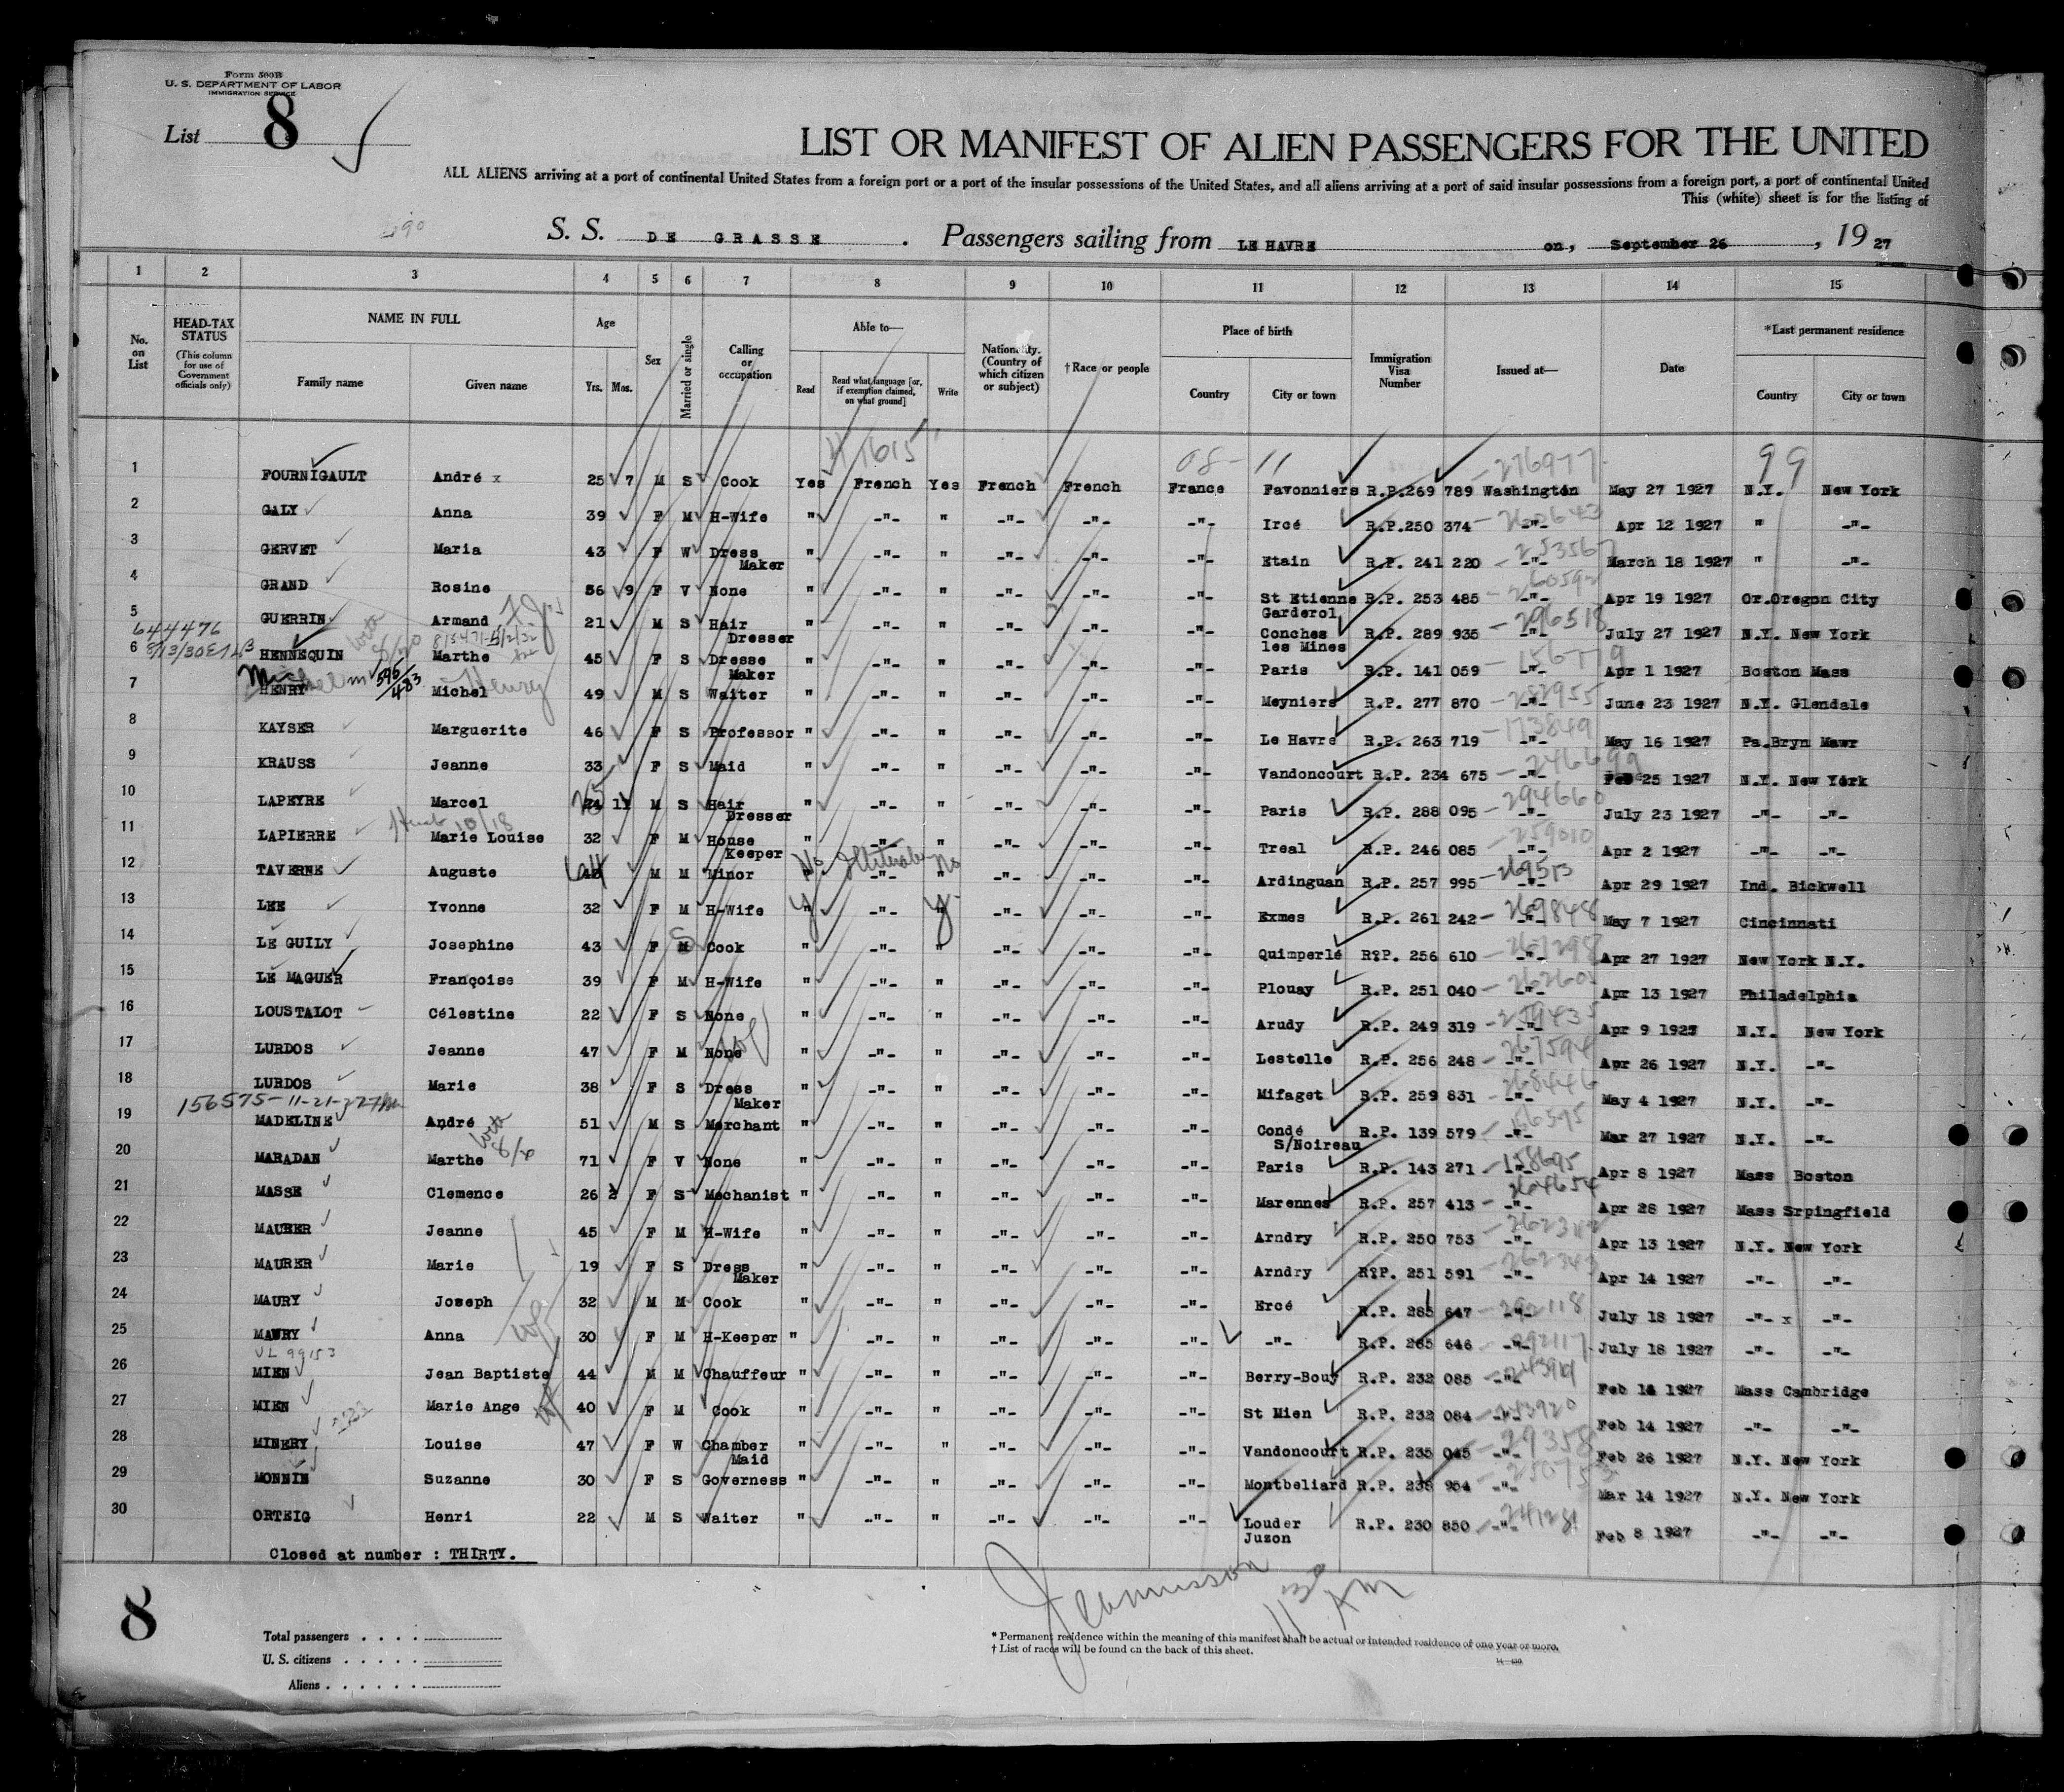 Form 500B
U. S. DEPARTMENT OF LABOR
IMMIGRATION SERVICE
List 8
LIST OR MANIFEST OF ALIEN PASSENGERS FOR THE UNITED
ALL ALIENS arriving at a port of continental United States from a foreign port or a port of the insular possessions of the United States, and all aliens arriving at a port of said insular possessions from a foreign port, a port of continental United
This (white) sheet is for the listing of
S. S. DE GRASSE . Passengers sailing from LE HAVRE on, September 26, 1927
1 2 3 4 5 6 7 8 9 10 11 12 13 14 15
No. on List
HEAD-TAX STATUS (This column for use of Government officials only)
NAME IN FULL Family name Given name
Age Yrs. Mos.
Sex
Married or single
Calling or occupation
Able to— Read Read what language [or, if exemption claimed, on what ground] Write
Nationality. (Country of which citizen or subject)
†Race or people
Place of birth Country City or town
Immigration Visa Number
Issued at—
Date
*Last permanent residence Country City or town
41615 08-11 276977 99
1 FOURNIGAULT André x 25 7 M S Cook Yes French Yes French French France Favonniers R.P.269 789 Washington May 27 1927 N.Y. New York
2 GALY Anna 39 F M H-Wife " -"- " -"- -"- -"- Ircé R.P.250 374 -"- Apr 12 1927 " -"-
3 GERVET Maria 43 F W Dress Maker " -"- " -"- -"- -"- Etain R.P. 241 220 -"- 253567 March 18 1927 " -"-
4 GRAND Rosine 56 9 F V None " -"- " -"- -"- -"- St Etienne R.P. 253 485 -"- Apr 19 1927 Or.Oregon City
5 GUERRIN Armand 21 M S Hair Dresser " -"- " -"- -"- -"- Garderol Conches les Mines R.P. 289 935 -"- 296518 July 27 1927 N.Y. New York
644476
6 HENNEQUIN Marthe 45 F S Dresse Maker " -"- " -"- -"- -"- Paris R.P. 141 059 -"- Apr 1 1927 Boston Mass
595/483 Henry
7 HENRY Michel 49 M S Waiter " -"- " -"- -"- -"- Meyniers R.P. 277 870 -"- 282955 June 23 1927 N.Y. Glendale
8 KAYSER Marguerite 46 F S Professor " -"- " -"- -"- -"- Le Havre R.P. 263 719 -"- 173849 May 16 1927 Pa.Bryn Mawr
9 KRAUSS Jeanne 33 F S Maid " -"- " -"- -"- -"- Vandoncourt R.P. 234 675 -"- 246699 Feb 25 1927 N.Y. New York
10 LAPEYRE Marcel 24 11 25 M S Hair Dresser " -"- " -"- -"- -"- Paris R.P. 288 095 -"- 294660 July 23 1927 -"- -"-
10/18
11 LAPIERRE Marie Louise 32 F M House Keeper " -"- " -"- -"- -"- Treal R.P. 246 085 -"- 259010 Apr 2 1927 -"- -"-
12 TAVERNE Auguste 64 M M Minor " No -"- Illiterate " No -"- -"- -"- Ardinguan R.P. 257 995 -"- 269513 Apr 29 1927 Ind. Bickwell
13 LEE Yvonne 32 F M H-Wife " y -"- " y -"- -"- -"- Exmes R.P. 261 242 -"- 269848 May 7 1927 Cincinnati
14 LE GUILY Josephine 43 F M S Cook " -"- " -"- -"- -"- Quimperlé R?P. 256 610 -"- Apr 27 1927 New York N.Y.
15 LE MAGUER Françoise 39 F M H-Wife " -"- " -"- -"- -"- Plouay R.P. 251 040 -"- Apr 13 1927 Philadelphia
16 LOUSTALOT Célestine 22 F S None " -"- " -"- -"- -"- Arudy R.P. 249 319 -"- 259435 Apr 9 1927 N.Y. New York
17 LURDOS Jeanne 47 F M None " -"- " -"- -"- -"- Lestelle R.P. 256 248 -"- 267594 Apr 26 1927 N.Y. -"-
18 LURDOS Marie 38 F S Dress Maker " -"- " -"- -"- -"- Mifaget R.P. 259 831 -"- 268446 May 4 1927 N.Y. -"-
156575-11-21-27
19 MADELINE André 51 M S Merchant " -"- " -"- -"- -"- Condé S/Noireau R.P. 139 579 -"- Mar 27 1927 N.Y. -"-
20 MARADAN Marthe 71 F V None " -"- " -"- -"- -"- Paris R.P. 143 271 -"- 158695 Apr 8 1927 Mass Boston
21 MASSE Clemence 26 2 F S Mechanist " -"- " -"- -"- -"- Marennes R.P. 257 413 -"- 264654 Apr 28 1927 Mass Srpingfield
22 MAURER Jeanne 45 F M H-Wife " -"- " -"- -"- -"- Arndry R.P. 250 753 -"- 262342 Apr 13 1927 N.Y. New York
23 MAURER Marie 19 F S Dress Maker " -"- " -"- -"- -"- Arndry R?P. 251 591 -"- 262343 Apr 14 1927 -"- -"-
24 MAURY Joseph 32 M M Cook " -"- " -"- -"- -"- Ercé R.P. 285 647 -"- 292118 July 18 1927 -"- x -"-
25 MAURY Anna 30 F M H-Keeper " -"- " -"- -"- -"- -"- R.P. 285 646 -"- 292117 July 18 1927 -"- -"-
VL 99153
26 MIEN Jean Baptiste 44 M M Chauffeur " -"- " -"- -"- -"- Berry-Bouy R.P. 232 085 -"- Feb 14 1927 Mass Cambridge
27 MIEN Marie Ange 40 F M Cook " -"- " -"- -"- -"- St Mien R.P. 232 084 -"- 243920 Feb 14 1927 -"- -"-
28 MINERY Louise 47 F W Chamber Maid " -"- " -"- -"- -"- Vandoncourt R.P. 235 045 -"- Feb 26 1927 N.Y. New York
29 MONNIN Suzanne 30 F S Governess " -"- " -"- -"- -"- Montbeliard R.P. 238 954 -"- Mar 14 1927 N.Y. New York
30 ORTEIG Henri 22 M S Waiter " -"- " -"- -"- -"- Louder Juzon R.P. 230 850 -"- 241281 Feb 8 1927 -"- -"-
Closed at number : THIRTY.
8
11 30 AM
Total passengers . . . .
U. S. citizens . . . . .
Aliens . . . . . .
* Permanent residence within the meaning of this manifest shall be actual or intended residence of one year or more.
† List of races will be found on the back of this sheet.